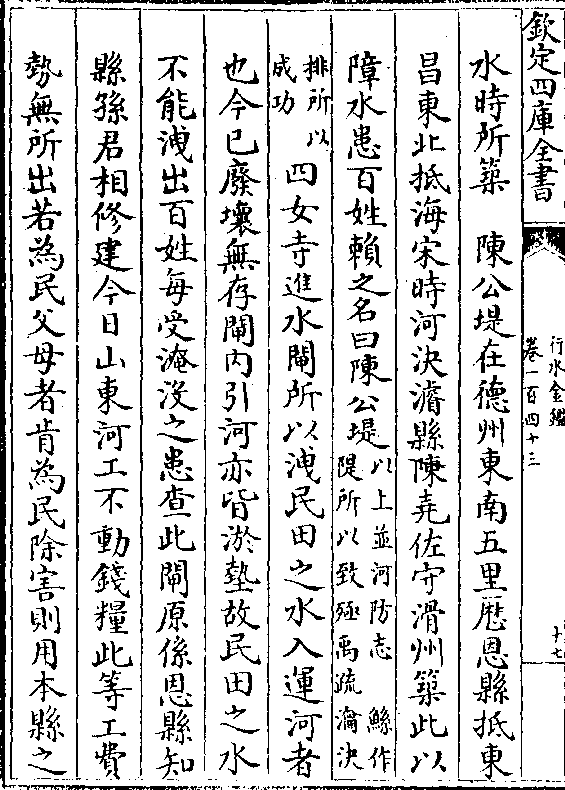 欽定四庫全書
行水金鑑
卷一百四十三
十七
水時所築　陳公堤在德州東南五里歷恩縣抵東
昌東北抵海宋時河決濬縣陳堯佐守滑州築此以
障水患百姓賴之名曰陳公堤以上並河防志　鯀作
隄所以致殛禹疏瀹決
排所以
成功
四女寺進水閘所以洩民田之水入運河者
也今已廢壞無存閘内引河亦皆淤墊故民田之水
不能洩出百姓每受淹沒之患查此閘原係恩縣知
縣孫君相修建今日山東河工不動錢糧此等工費
勢無所出若為民父母者肯為民除害則用本縣之